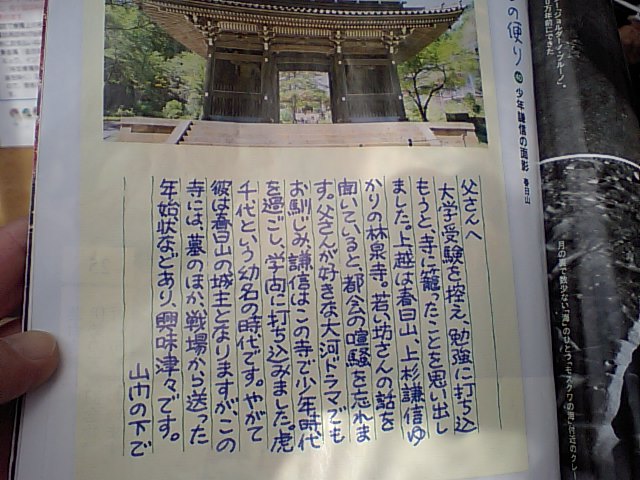 の便り
少年謙信の面影
春日山
父さんへ
大学受験を控え、勉強に打ち込
もうと、寺に籠ったことを思い出し
ました。上越は春日山、上杉謙信ゆ
かりの林泉寺。若い坊さんの話を
聞いていると、都会の喧騒を忘れま
す。父さんが好きな大河ドラマでも
お馴じみ、謙信はこの寺で少年時代
を過ごし、学問に打ち込みました。虎
千代という幼名の時代です。やがて
彼は春日山の城主となりますが、この
寺には、墓のほか、戦場から送った
年始状などあり、興味津々です。
山门の下で
月の裏で数少ない「海」のひとつ「モスクワの海」付近のクレー